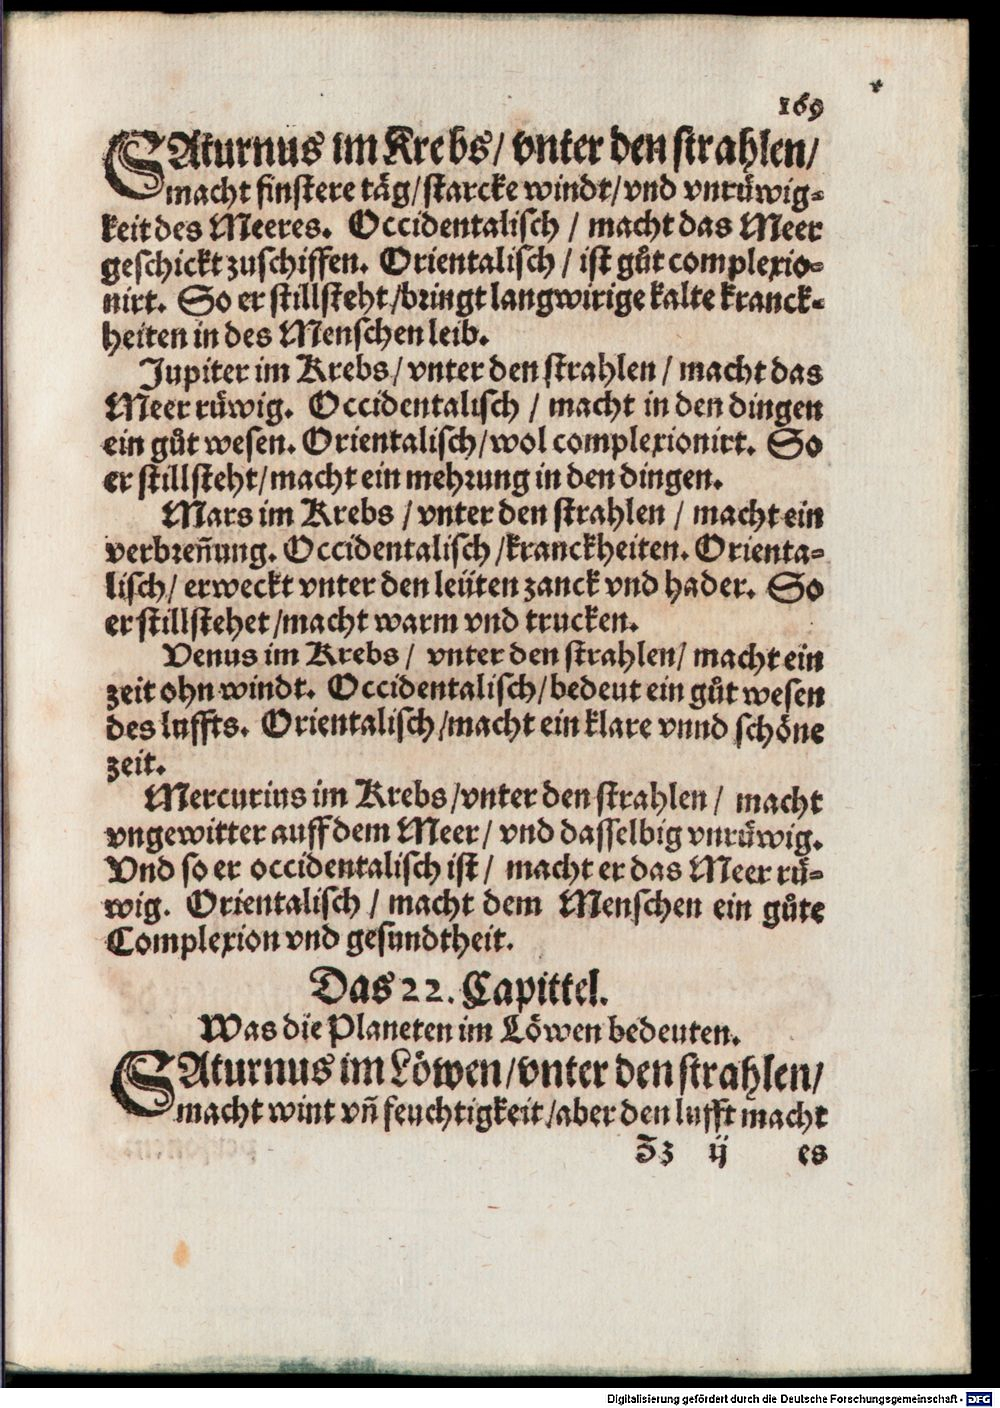 169
SAturnus im Krebs/ vnter den strahlen/
macht finstere täg/ starcke windt/ vnd vnrůwig-
keit des Meeres. Occidentalisch / macht das Meer
geschickt zuschiffen. Orientalisch / ist gůt complexio-
nirt. So er stillsteht/ bringt langwirige kalte kranck-
heiten in des Menschen leib.
Jupiter im Krebs/ vnter den strahlen / macht das
Meer růwig. Occidentalisch / macht in den dingen
ein gůt wesen. Orientalisch/ wol complexionirt. So
er stillsteht/ macht ein mehrung in den dingen.
Mars im Krebs / vnter den strahlen / macht ein
verbreñung. Occidentalisch /kranckheiten. Orienta-
lisch/ erweckt vnter den leüten zanck vnd hader. So
er stillstehet /macht warm vnd trucken.
Venus im Krebs/ vnter den strahlen/ macht ein
zeit ohn windt. Occidentalisch/ bedeut ein gůt wesen
des luffts. Orientalisch /macht ein klare vnnd schöne
zeit.
Mercurius im Krebs /vnter den strahlen / macht
vngewitter auff dem Meer/ vnd dasselbig vnrůwig.
Vnd so er occidentalisch ist/ macht er das Meer rů-
wig. Orientalisch / macht dem Menschen ein gůte
Complexion vnd gesundtheit.
Das 22. Capittel.
Was die Planeten im Löwen bedeuten.
SAturnus im Löwen/ vnter den strahlen/
macht wint vñ feuchtigkeit /aber den lufft macht
Zz ij es
Digitalisierung gefördert durch die Deutsche Forschungsgemeinschaft - DFG